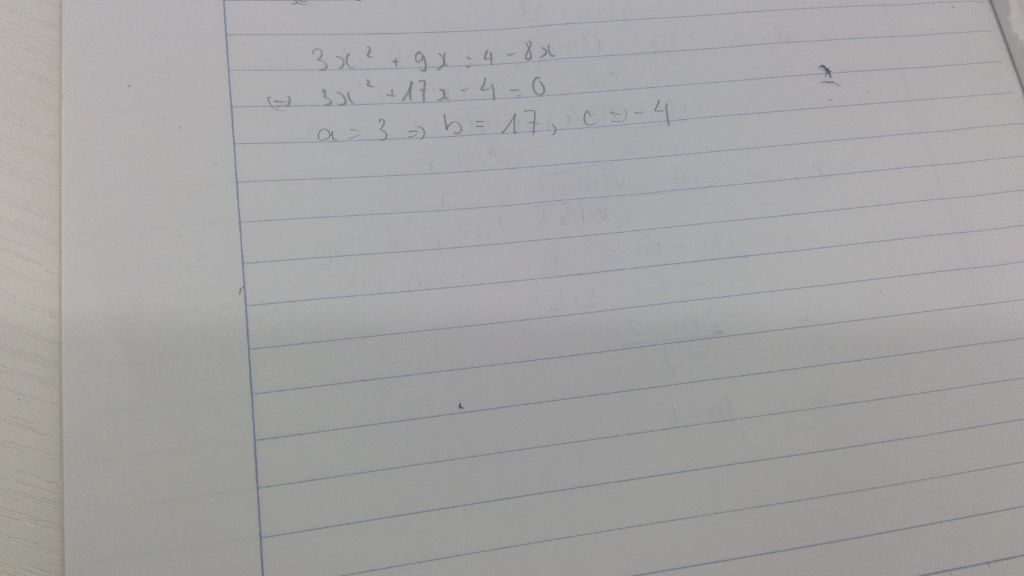 3x² + 9x = 4 - 8x
⇔ 3x² + 17x - 4 = 0
a = 3 ⇒ b = 17, c ⇒ - 4